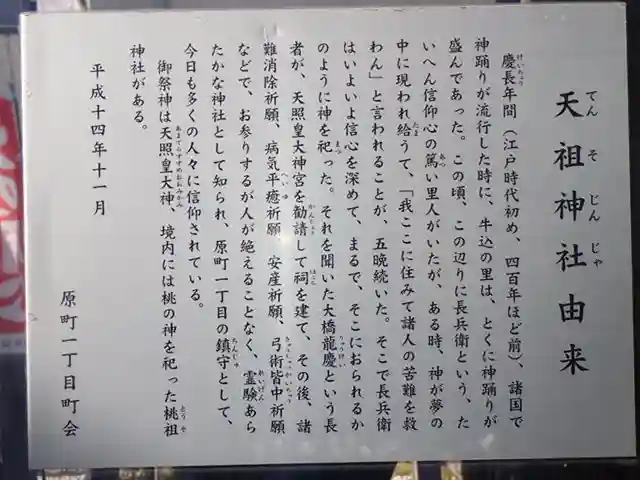 天祖神社由来
慶長年間(江戸時代初め、四百年ほど前)、諸国で
神踊りが流行した時に、牛込の里は、とくに神踊りが
盛んであった。この頃、この辺りに長兵衛という、た
いへん信仰心の篤い里人がいたが、ある時、神が夢の
中に現われ給うて、「我ここに住みて諸人の苦難を救
わん」と言われることが、五晩続いた。そこで長兵衛
はいよいよ信心を深めて、まるで、そこにおられるか
のように神を祀った。それを聞いた大橋龍慶という長
者が、天照皇大神宮を勧請して祠を建て、その後、諸
難消除祈願、病気平癒祈願、安産祈願、弓術皆中祈願
などで、お参りするが人が絶えることなく、霊験あら
たかな神社として知られ、原町一丁目の鎮守として、
今日も多くの人々に信仰されている。
御祭神は天照皇大神、境内には桃の神を祀った桃祖
神社がある。
平成十四年十一月
原町一丁目町会